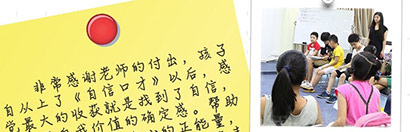 非常感谢老师的付出，孩子
自从上了《自信口才》以后，感
觉最大的收获就是找到了自信，
我价值的确定感。帮助
的正能量，